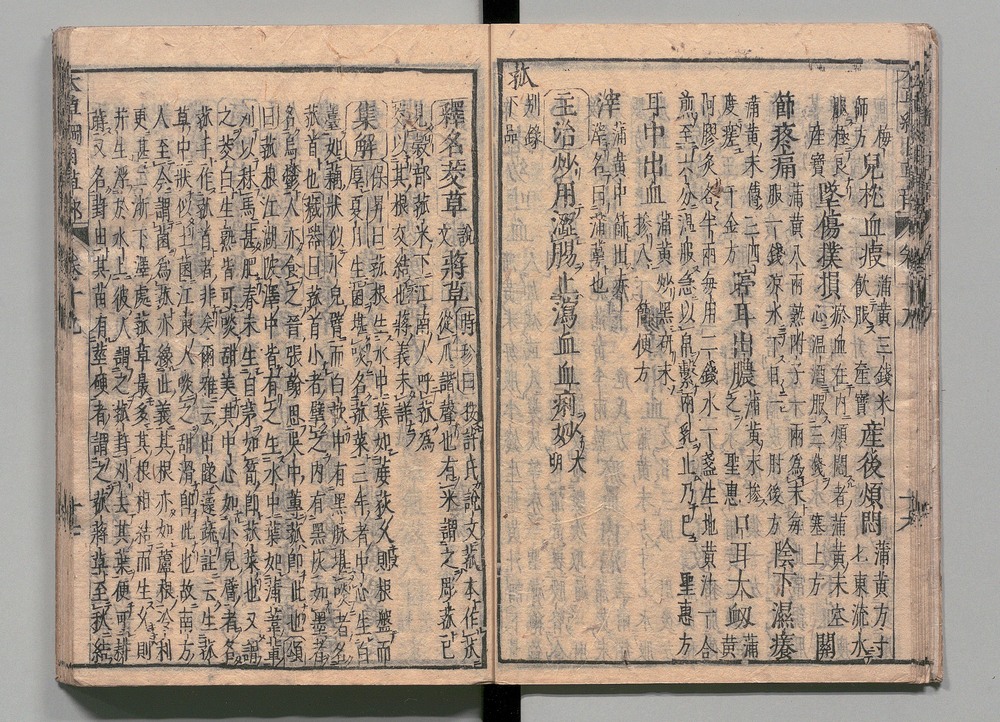 梅師方 兒枕血瘕 蒲黃三錢米飲服 產寶 產後煩悶 蒲黃方寸匕東流水
服極良 產寶 墜傷撲損 瘀血在內煩悶者蒲黃末空心溫酒服三錢 塞上方 關
節疼痛 蒲黃八兩熟附子一兩爲末每服一錢凉水下日一 肘後方 陰下濕癢
蒲黃末傅三四度瘥 千金方 聤耳出膿 蒲黃末摻之 聖惠 口耳大衂 蒲黃
阿膠炙各半兩每用二錢水一盞生地黃汁一合
煎至六分溫服急以帛繫兩乳止乃已 聖惠方
耳中出血 蒲黃炒黑研末摻入 簡便方
滓 蒲黃中篩出赤滓名曰蒲蕚也
主治炒用澀腸止瀉血血痢妙 大明
菰 別錄下品
釋名茭草 說文 蔣草 時珍曰按許氏說文菰本作苽從瓜諧聲也有米謂之彫菰已
見穀部菰米下江南人呼菰爲
茭以其根交結也蔣義未詳
集解 保昇曰菰根生水中葉如蔗荻久則根盤而厚夏月生菌堪啖名菰菜三年者中心生白
薹如藕狀似小兒臂而白軟中有黑脉堪啖者名
菰首也藏器曰菰首小者擘之內有黑灰如墨者
名烏鬱人亦食之晉張翰思吳中蓴菰卽此也頌
曰菰根江湖陂澤中皆有之生水中葉如蒲葦輩
刈以秣馬甚肥春末生白茅如筍卽菰菜也又謂
之茭白生熟皆可啖甜美其中心如小兒臂者名
菰手作菰首者非矣爾雅云出隧蘧蔬註云生菰
草中狀似土菌江東人啖之甜滑卽此也故南方
人至今謂菌爲菰亦緣此義其根亦如蘆根冷利
更甚二浙下澤處菰草最多其根相結而生久則
并生浮於水上彼人謂之菰葑刈去其葉便可耕
蒔又名葑田其苗有莖硬者謂之菰蔣草至秋結